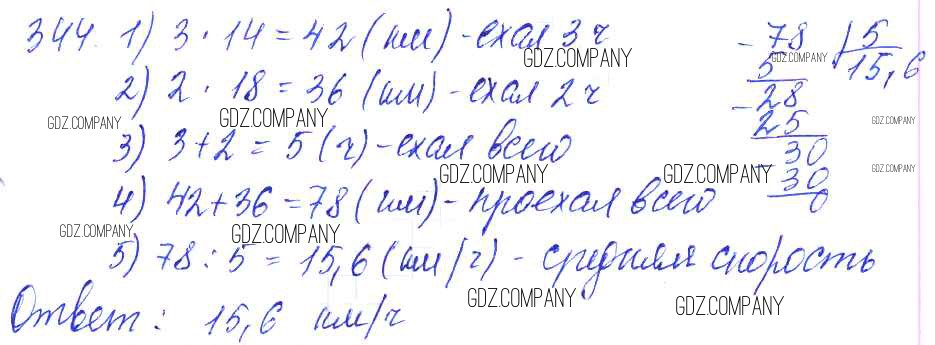 344. 1) 3 · 14 = 42 (км) - ехал 3 ч
2) 2 · 18 = 36 (км) - ехал 2 ч
3) 3+2 = 5 (ч) - ехал всего
4) 42+36 = 78 (км) - проехал всего
5) 78 : 5 = 15,6 (км/ч) - средняя скорость
Ответ: 15,6 км/ч
- 78 | 5
5 15,6
- 28
25
- 30
30
0
GDZ.COMPANY
GDZ.COMPANY
GDZ.COMPANY
GDZ.COMPANY
GDZ.COMPANY
GDZ.COMPANY
GDZ.COMPANY
GDZ.COMPANY
GDZ.COMPANY
GDZ.COMPANY
GDZ.COMPANY
GDZ.COMPANY